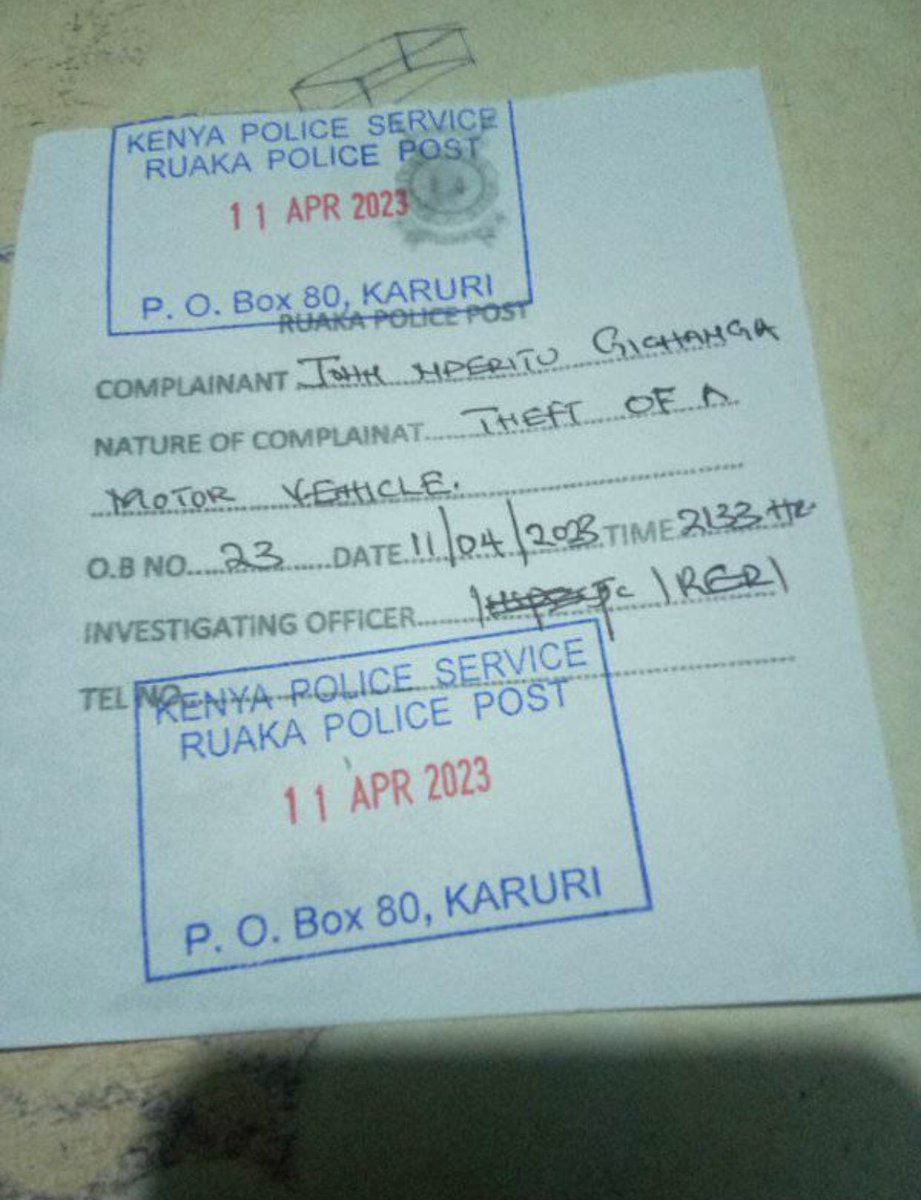 KENYA POLICE SERVICE
RUAKA POLICE POST
11 APR 2023
P. O. Box 80, KARURI
RUAKA POLICE POST
COMPLAINANT John GICHANGA
NATURE OF COMPLAINAT THEFT OF A
MOTOR VEHICLE.
O.B NO. 23 DATE 11/04/2023 TIME 2133 Hr
INVESTIGATING OFFICER IRERI
TEL NO
KENYA POLICE SERVICE
RUAKA POLICE POST
11 APR 2023
P. O. Box 80, KARURI